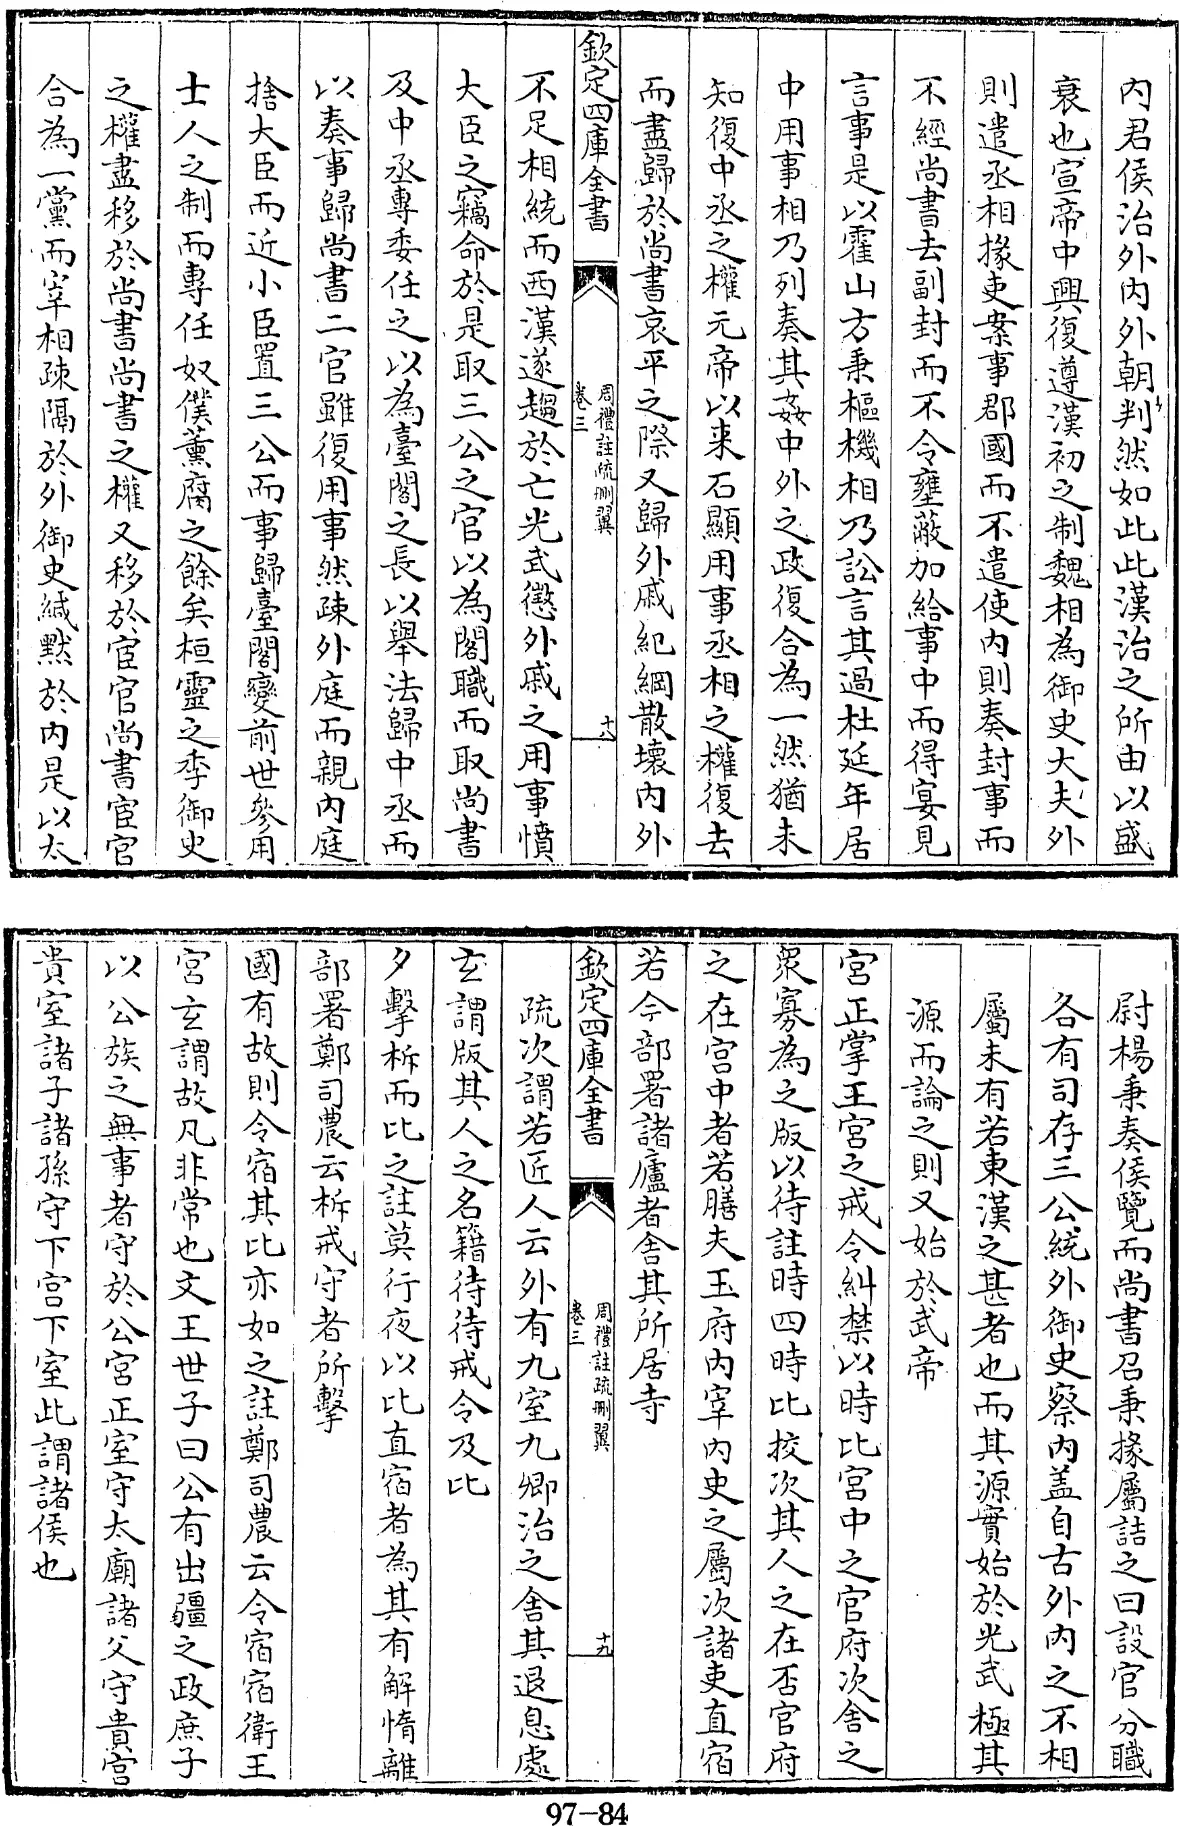 内君侯治外内外朝判然如此此漢治之所由以盛
衰也宣帝中興復遵漢初之制魏相為御史大夫外
則遣丞相掾吏案事郡國而不遣使内則奏封事而
不經尚書去副封而不令壅蔽加給事中而得宴見
言事是以霍山方秉樞機相乃訟言其過杜延年居
中用事相乃列奏其姦中外之政復合為一然猶未
知復中丞之權元帝以来石顯用事丞相之權復去
而盡歸於尚書哀平之際又歸外戚紀綱散壞内外
欽定四庫全書
周禮註疏刪翼
卷三
十八
不足相統而西漢遂趨於亡光武懲外戚之用事憤
大臣之竊命於是取三公之官以為閣職而取尚書
及中丞專委任之以為臺閣之長以舉法歸中丞而
以奏事歸尚書二官雖復用事然疎外庭而親内庭
捨大臣而近小臣置三公而事歸臺閣變前世參用
士人之制而專任奴僕薰腐之餘矣桓靈之季御史
之權盡移於尚書尚書之權又移於宦官尚書宦官
合為一黨而宰相疎隔於外御史緘黙於内是以太
尉楊秉奏侯覽而尚書召秉掾屬詰之曰設官分職
各有司存三公統外御史察内盖自古外内之不相
屬未有若東漢之甚者也而其源實始於光武極其
源而論之則又始於武帝
宮正掌王宮之戒令糾禁以時比宮中之官府次舍之
衆寡為之版以待註時四時比挍次其人之在否官府
之在宮中者若膳夫玉府内宰内史之屬次諸吏直宿
若今部署諸廬者舍其所居寺
欽定四庫全書
周禮註疏刪翼
卷三
十九
疏次謂若匠人云外有九室九卿治之舍其退息處
玄謂版其人之名籍待待戒令及比
夕擊柝而比之註莫行夜以比直宿者為其有解惰離
部署鄭司農云柝戒守者所擊
國有故則令宿其比亦如之註鄭司農云令宿宿衛王
宮玄謂故凡非常也文王世子曰公有出疆之政庶子
以公族之無事者守於公宮正室守太廟諸父守貴宮
貴室諸子諸孫守下宮下室此謂諸侯也
97-84